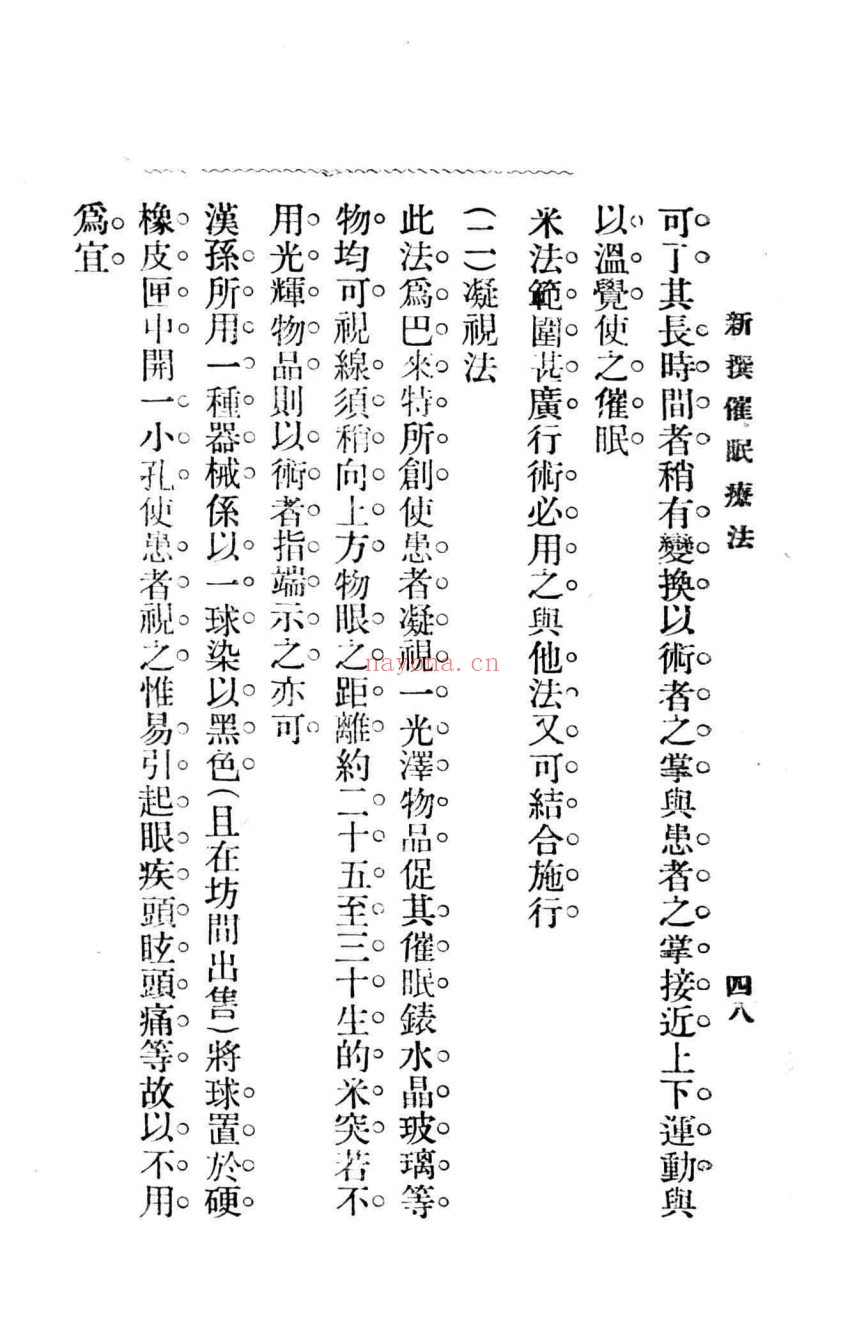 新撰催眠療法
四八
可了其長時間者稍有變換以術者之掌與患者之掌接近上下運動與
以溫覺使之催眠
米法範圍甚廣行術必用之與他法又可結合施行
(二)凝視法
此法爲巴來特所創使患者凝視一光澤物品促其催眠錶水晶玻璃等
物均可視線須稍向上方物眼之距離約二十五至三十生的米突若不
用光輝物品則以術者指端示之亦可
漢孫所用一種器械係以一球染以黑色(且在坊間出售)將球置於硬
橡皮匣中開一小孔使患者視之惟易引起眼疾頭眩頭痛等故以不用
爲宜
nayona.cn